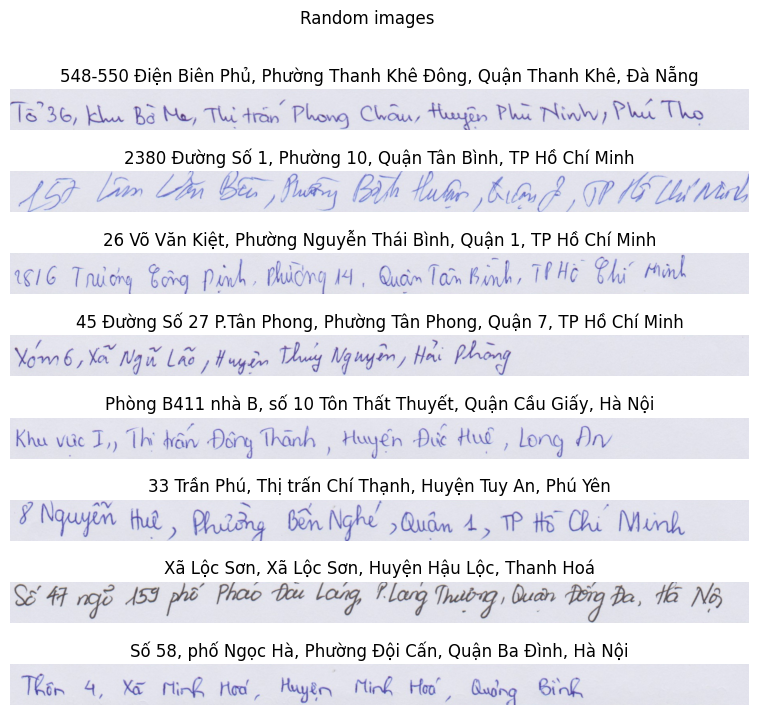 Random images
548-550 Điện Biên Phủ, Phường Thanh Khê Đông, Quận Thanh Khê, Đà Nẵng
Tổ 36, khu Bờ Me, Thị trấn Phong Châu, Huyện Phù Ninh, Phú Thọ
2380 Đường Số 1, Phường 10, Quận Tân Bình, TP Hồ Chí Minh
157 Lâm Văn Bền, Phường Bình Thuận, Quận 7, TP Hồ Chí Minh
26 Võ Văn Kiệt, Phường Nguyễn Thái Bình, Quận 1, TP Hồ Chí Minh
281G Trương Công Định, Phường 14, Quận Tân Bình, TP Hồ Chí Minh
45 Đường Số 27 P.Tân Phong, Phường Tân Phong, Quận 7, TP Hồ Chí Minh
Xóm 6, Xã Ngũ Lão, Huyện Thủy Nguyên, Hải Phòng
Phòng B411 nhà B, số 10 Tôn Thất Thuyết, Quận Cầu Giấy, Hà Nội
Khu vực I,, Thị trấn Đông Thành, Huyện Đức Huệ, Long An
33 Trần Phú, Thị trấn Chí Thạnh, Huyện Tuy An, Phú Yên
8 Nguyễn Huệ, Phường Bến Nghé, Quận 1, TP Hồ Chí Minh
Xã Lộc Sơn, Xã Lộc Sơn, Huyện Hậu Lộc, Thanh Hoá
Số 47 ngõ 159 phố Pháo Đài Láng, P.Láng Thượng, Quận Đống Đa, Hà Nội
Số 58, phố Ngọc Hà, Phường Đội Cấn, Quận Ba Đình, Hà Nội
Thôn 4, Xã Minh Hoá, Huyện Minh Hoá, Quảng Bình